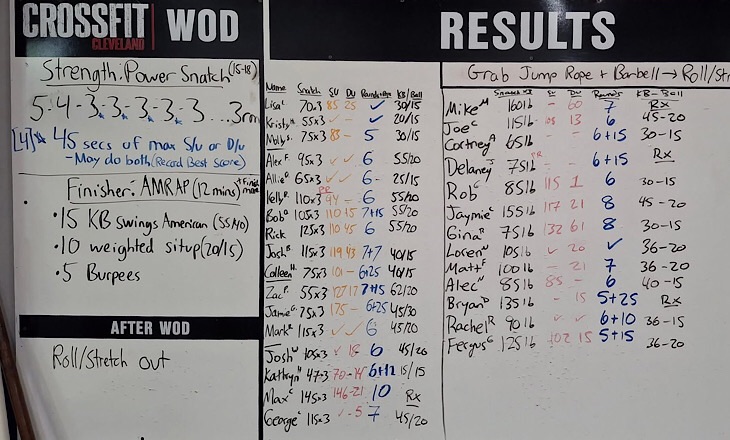 CROSSFIT CLEVELAND WOD
Strength: Power Snatch (15-18)
5-4-3-3-3-3-3...3rm
[4]* 45 secs of max S/u or D/u
-May do both (Record Best Score)
Finisher: AMRAP (12 mins)
•15 KB Swings American (55/40)
•10 weighted situp (20/15)
•5 Burpees
AFTER WOD
Roll/Stretch out
RESULTS
Grab Jump Rope + Barbell → Roll/Str
Name Snatch SU DU Rounds KB/Ball
Lisa L 70x3 85 25 ✓ 30/15
Kristy 55x3 ✓ - ✓ 20/15
Molly S 75x3 83 - 5 30/15
Alex F 95x3 ✓ ✓ 6 55/20
Allie 65x3 ✓ ✓ 6 25/15
Kelly 110x3 PR 94 - 6 55/20
Bob 105x3 110 15 7+15 55/20
Rick 125x3 110 45 6 55/20
Josh 115x3 119 43 7+7 40/15
Colleen 75x3 101 - 6+25 40/15
Zac 55x3 127 17 7+15 62/20
Jamie 75x3 175 - 6+25 45/30
Mark 115x3 ✓ ✓ 6 45/20
Josh 105x3 ✓ 18 6 45/20
Kathryn 47x3 70-14 6+12 15/15
Max C 145x3 146-21 10 Rx
George 115x3 ✓-5 7 45/20
Snatch SU DU Rounds KB-Ball
Mike M 160lb - 60 7 Rx
Joe C 115lb 13 6 45-20
Cortney A 65lb - - 6+15 30-15
Delaney J 75lb PR - - 6+15 Rx
Rob C 85lb 115 1 6 30-15
Jaymie 155lb 117 21 8 45-20
Gina R 75lb 132 61 8 30-15
Loren 105lb ✓ 20 ✓ 36-20
Matt F 100lb - 21 7 36-20
Alec N 85lb 85 - 6 40-15
Bryan D 135lb - 15 5+25 Rx
Rachel R 90lb ✓ ✓ 6+10 36-15
Fergus G 125lb 102 15 5+15 36-20